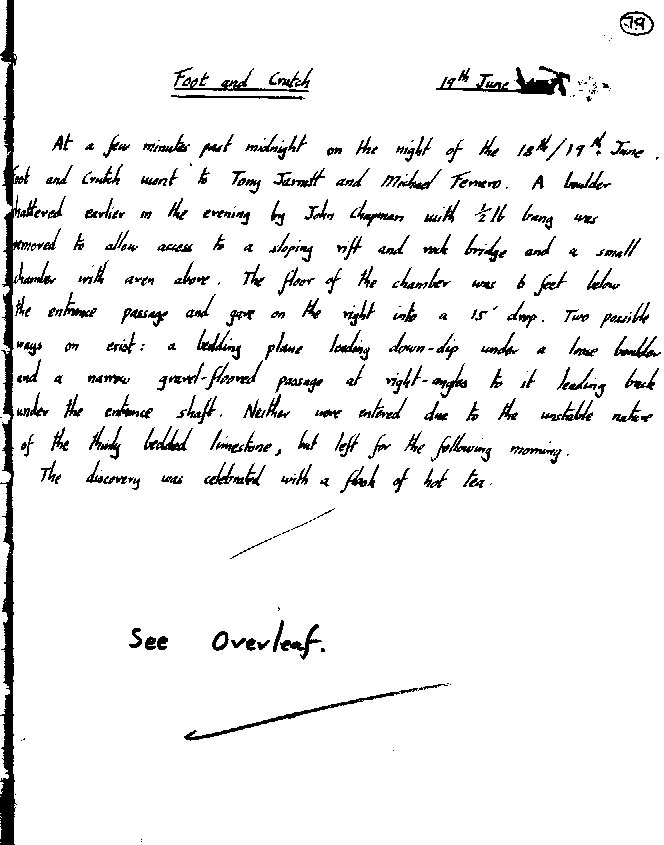 79
Foot and Crutch 19th June
At a few minutes past midnight on the night of the 18th/19th June
Foot and Crutch went to Tony Jarratt and Michael Ferrero. A boulder
shattered earlier in the evening by John Chapman with ½ lb bang was
removed to allow access to a sloping rift and rock bridge and a small
chamber with aven above. The floor of the chamber was 6 feet below
the entrance passage and gave on the right into a 15' drop. Two possible
ways on exist: a bedding plane leading down-dip under a loose boulder
and a narrow gravel-floored passage at right-angles to it leading back
under the entrance shaft. Neither were entered due to the unstable nature
of the thinly bedded limestone, but left for the following morning.
The discovery was celebrated with a flask of hot tea.
See Overleaf.